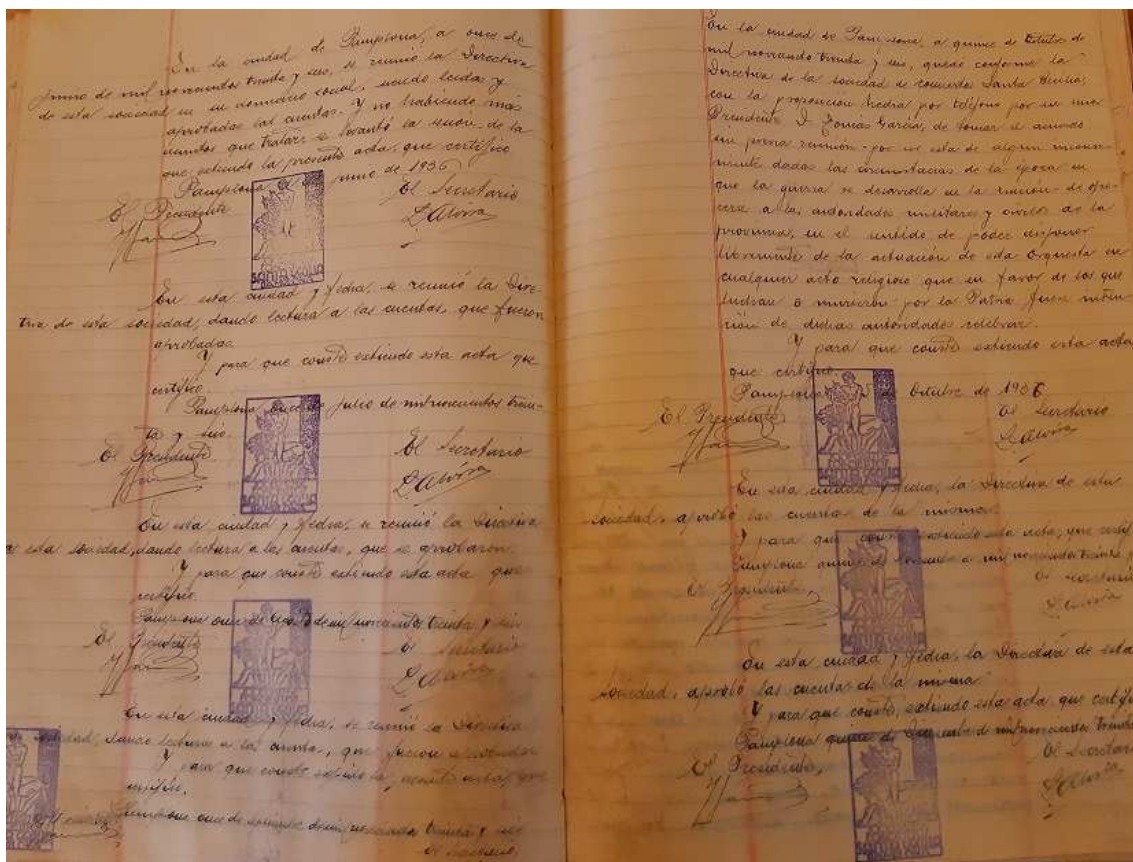 En la ciudad de Pamplona, a once de
junio de mil novecientos treinta y seis, se reunió la Directiva
de esta sociedad en su domicilio social, siendo leidas y
aprobadas las cuentas. Y no habiendo más
asuntos que tratar se levantó la sesión, de la
que extiendo la presente acta, que certifico
Pamplona junio de 1936
El Presidente El Secretario
En esta ciudad y fecha, se reunió la Direc-
tiva de esta sociedad, dando lectura a las cuentas, que fueron
aprobadas.
Y para que conste extiendo esta acta que
certifico.
Pamplona once de julio de mil novecientos trein-
ta y seis.
El Presidente El Secretario
SANTA CECILIA
En esta ciudad y fecha, se reunió la Directiva
de esta sociedad, dando lectura a las cuentas, que se aprobaron.
Y para que conste extiendo esta acta que
certifico.
Pamplona once de agosto de mil novecientos treinta y seis
El Presidente El Secretario
En esta ciudad y fecha, se reunió la Directiva
sociedad, dando lectura a las cuentas, que fueron
Y para que conste extiendo la presente acta, que
certifico.
Pamplona once de setiembre de mil novecientos treinta y seis
El Secretario
En la ciudad de Pamplona, a quince de Octubre de
mil novecientos treinta y seis, quedó conforme la
Directiva de la sociedad de conciertos Santa Cecilia,
con la proposición hecha por teléfono por su
Presidente D. García, de tomar el acuerdo
sin previa reunión - por ser esta de algún inconve-
niente dadas las circunstancias de la época en
que la guerra se desarrolla en la nación - de ofre-
cerse a las autoridades militares y civiles de la
provincia, en el sentido de poder disponer
libremente de la actuación de esta Orquesta en
cualquier acto religioso que en favor de los que
luchan o murieron por la Patria fuese inten-
ción de dichas autoridades celebrar.
Y para que conste extiendo esta acta
que certifico.
Pamplona de Octubre de 1936
El Presidente El Secretario
SANTA CECILIA
En esta ciudad y fecha, la Directiva de esta
sociedad, aprobó las cuentas de la misma
Y para que conste extiendo esta acta, que certif
de mil novecientos treinta y
El Presidente El Secretario
En esta ciudad y fecha, la Directiva de esta
sociedad, aprobó las cuentas de la misma
Y para que conste, extiendo esta acta, que certifi
Pamplona quince de Diciembre de mil novecientos treinta
El Presidente, El Secretari